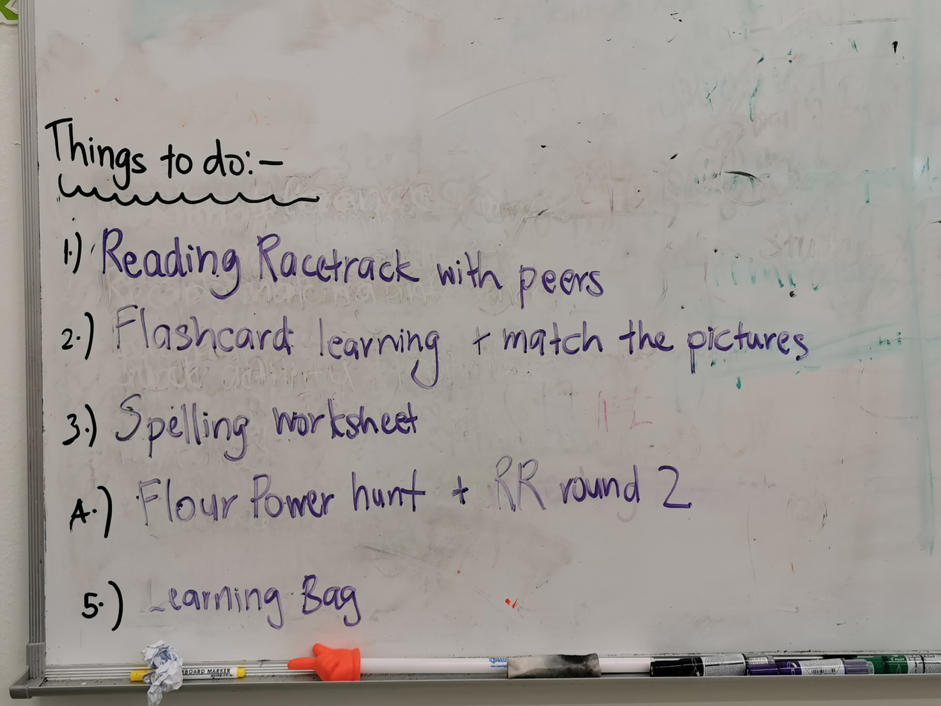 Things to do:-
1.) Reading Racetrack with peers
2.) Flashcard learning + match the pictures
3.) Spelling worksheet
4.) Flour Power hunt + RR round 2
5.) Learning Bag